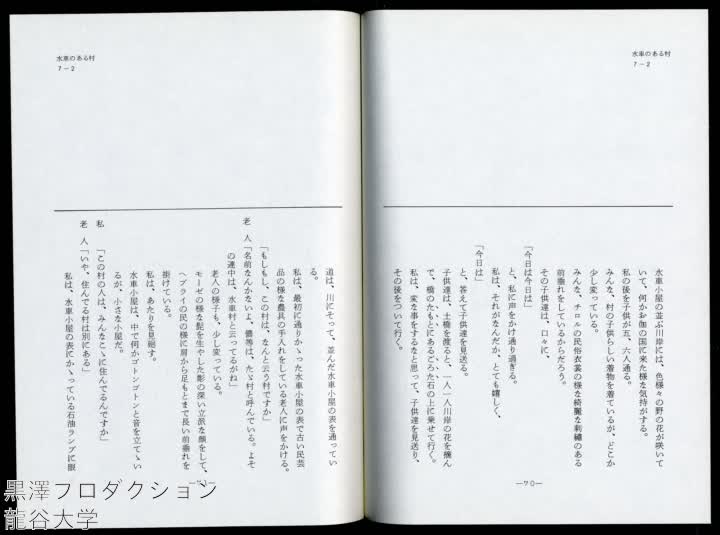 水車のある村
7－2
水車小屋の並ぶ川岸には、色様々の野の花が咲いて
いて、何かお伽の国に来た様な気持がする。
私の後を子供が五、六人通る。
みんな、村の子供らしい着物を着ているが、どこか
少し変っている。
みんな、チロルの民俗衣裳の様な綺麗な刺繡のある
前垂れをしているからだろう。
その子供達は、口々に、
「今日は今日は」
と、私に声をかけ通り過ぎる。
私は、それがなんだか、とても嬉しく、
「今日は」
と、答えて子供達を見送る。
子供達は、土橋を渡ると、一人一人川岸の花を摘ん
で、橋のたもとにあるごろた石の上に乗せて行く。
私は、変な事をするなと思って、子供達を見送り、
その後をついて行く。
―70―
水車のある村
7－2
道は、川にそって、並んだ水車小屋の表を通ってい
る。
私は、最初に通りかゝった水車小屋の表で古い民芸
品の様な農具の手入れをしている老人に声をかける。
「もしもし、この村は、なんと云う村ですか」
老　人「名前なんかないよ、儂等は、たゞ村と呼んでいる。よそ
の連中は、水車村と云ってるがね」
老人の様子も、少し変っている。
モーゼの様な髭を生やした彫の深い立派な顔をして、
ヘブライの民の様に肩から足もとまで長い前垂れを
掛けている。
私は、あたりを見廻す。
みんな、水車小屋は、中で何かゴトンゴトンと音を立てゝい
るが、小さな小屋だ。
私　「この村の人は、みんなこゝに住んでるんですか」
老　人「いや、住んでる村は別にある」
私は、水車小屋の表にかゝっている石油ランプに眼
黒澤プロダクション
龍谷大学